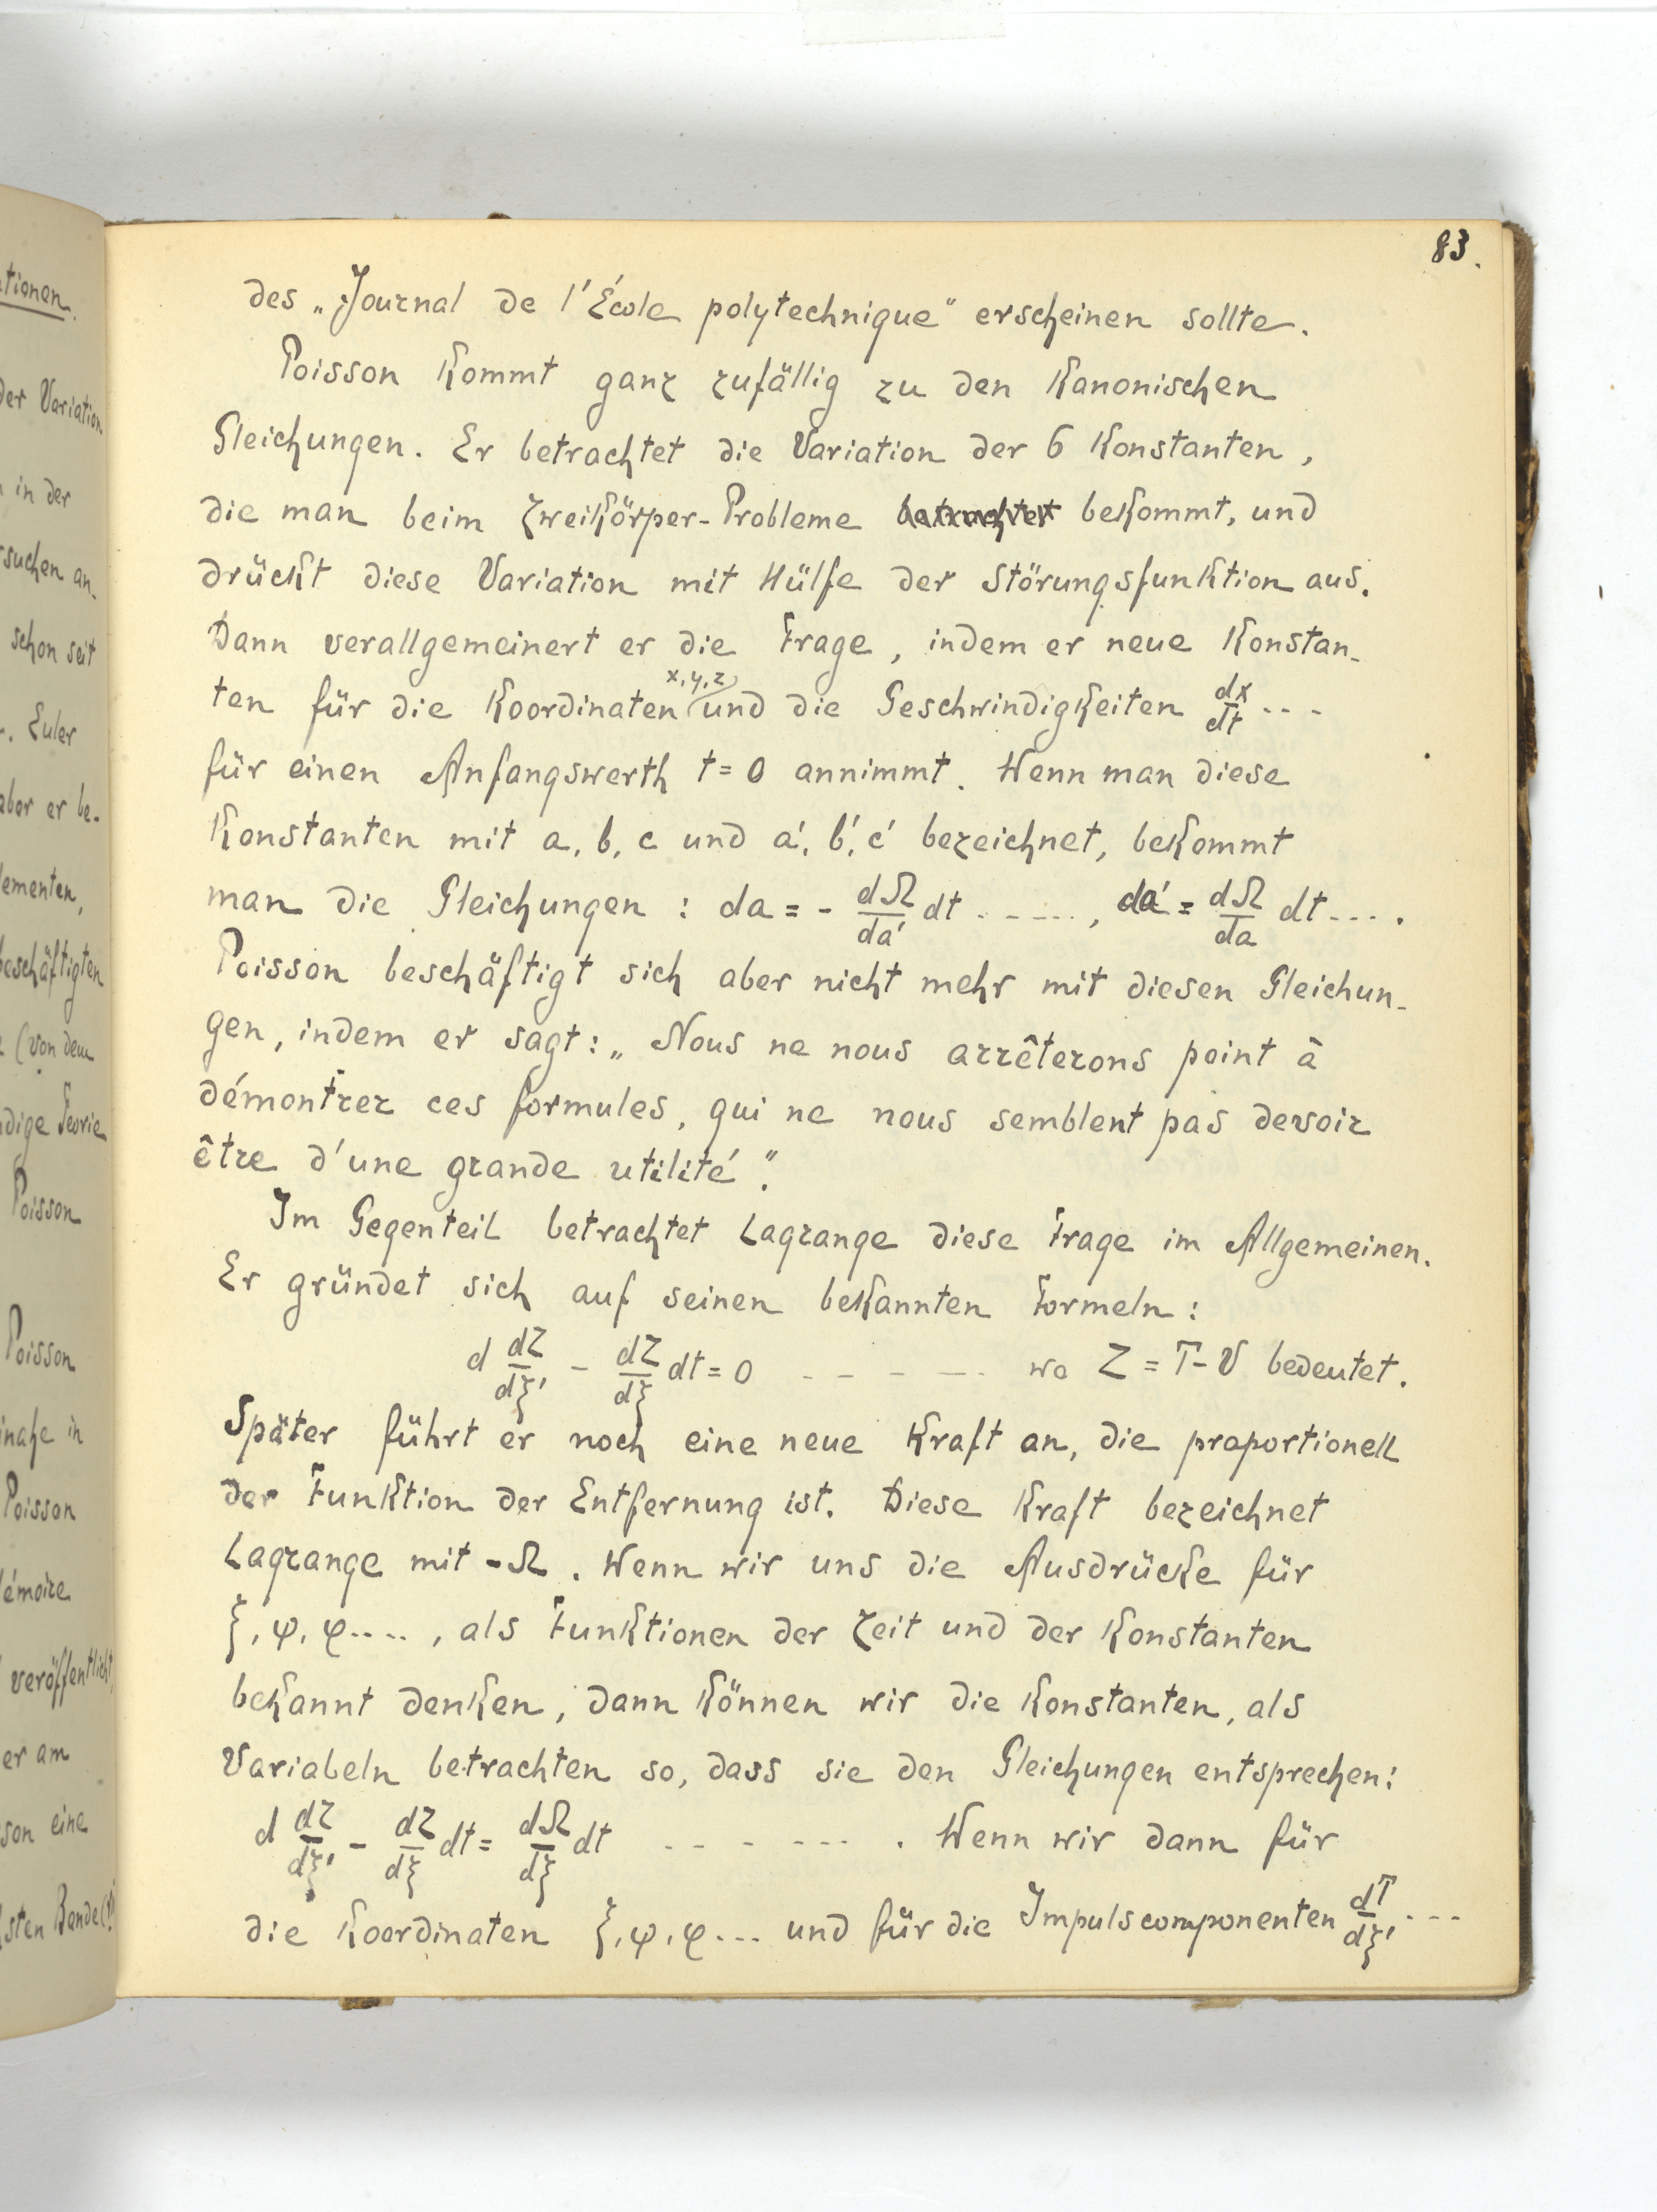 83.
des „Journal de l'École polytechnique“ erscheinen sollte.
Poisson kommt ganz zufällig zu den kanonischen
Gleichungen. Er betrachtet die Variation der 6 Konstanten,
die man beim Zweikörper-Probleme betrachtet bekommt, und
drückt diese Variation mit Hülfe der Störungsfunktion aus.
Dann verallgemeinert er die Frage, indem er neue Konstan-
ten für die Koordinaten x, y, z und die Geschwindigkeiten dx/dt ...
für einen Anfangswerth t = 0 annimmt. Wenn man diese
Konstanten mit a, b, c und a', b', c' bezeichnet, bekommt
man die Gleichungen : da = - dΩ/da' dt ......, da' = dΩ/da dt ....
Poisson beschäftigt sich aber nicht mehr mit diesen Gleichun-
gen, indem er sagt: „Nous ne nous arrêterons point à
démontrer ces formules, qui ne nous semblent pas devoir
être d'une grande utilité“.
Im Gegenteil betrachtet Lagrange diese Frage im Allgemeinen.
Er gründet sich auf seinen bekannten Formeln :
d dZ/dξ' - dZ/dξ dt = 0 - - - - - wo Z = T - V bedeutet.
Später führt er noch eine neue Kraft an, die proportionell
der Funktion der Entfernung ist. Diese Kraft bezeichnet
Lagrange mit -Ω. Wenn wir uns die Ausdrücke für
ξ, ψ, φ...., als Funktionen der Zeit und der Konstanten
bekannt denken, dann können wir die Konstanten, als
Variabeln betrachten so, dass sie den Gleichungen entsprechen:
d dZ/dξ' - dZ/dξ dt = dΩ/dξ dt - - - - - - . Wenn wir dann für
die Koordinaten ξ, ψ, φ... und für die Impulscomponenten dT/dξ' ...